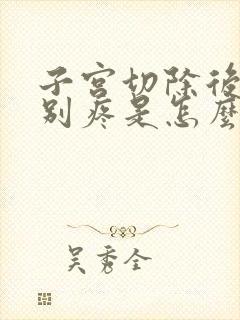 子宮切除後
別疼是怎麼
吴秀全